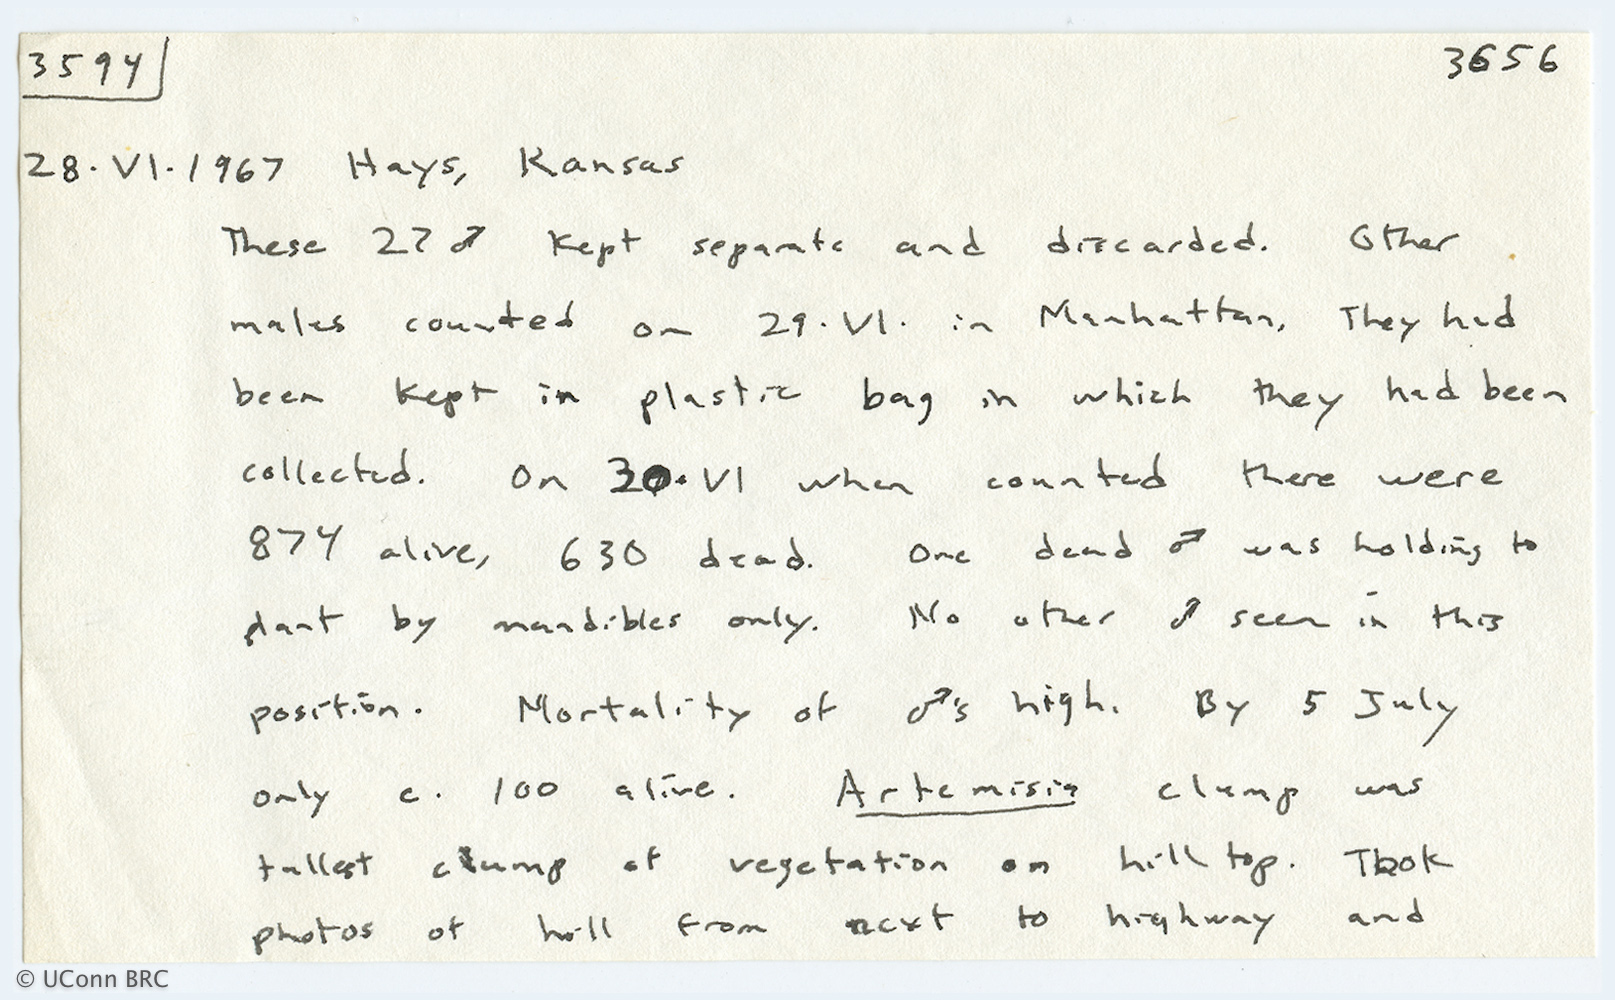 3594
3656
28.VI.1967 Hays, Kansas
These 27 ♂ kept separate and discarded. Other
males counted on 29.VI. in Manhattan. They had
been kept in plastic bag in which they had been
collected. On 30.VI when counted there were
874 alive, 630 dead. One dead ♂ was holding to
plant by mandibles only. No other ♂ seen in this
position. Mortality of ♂'s high. By 5 July
only c. 100 alive. Artemisia clump was
tallest clump of vegetation on hill top. Took
photos of hill from next to highway and
© UConn BRC